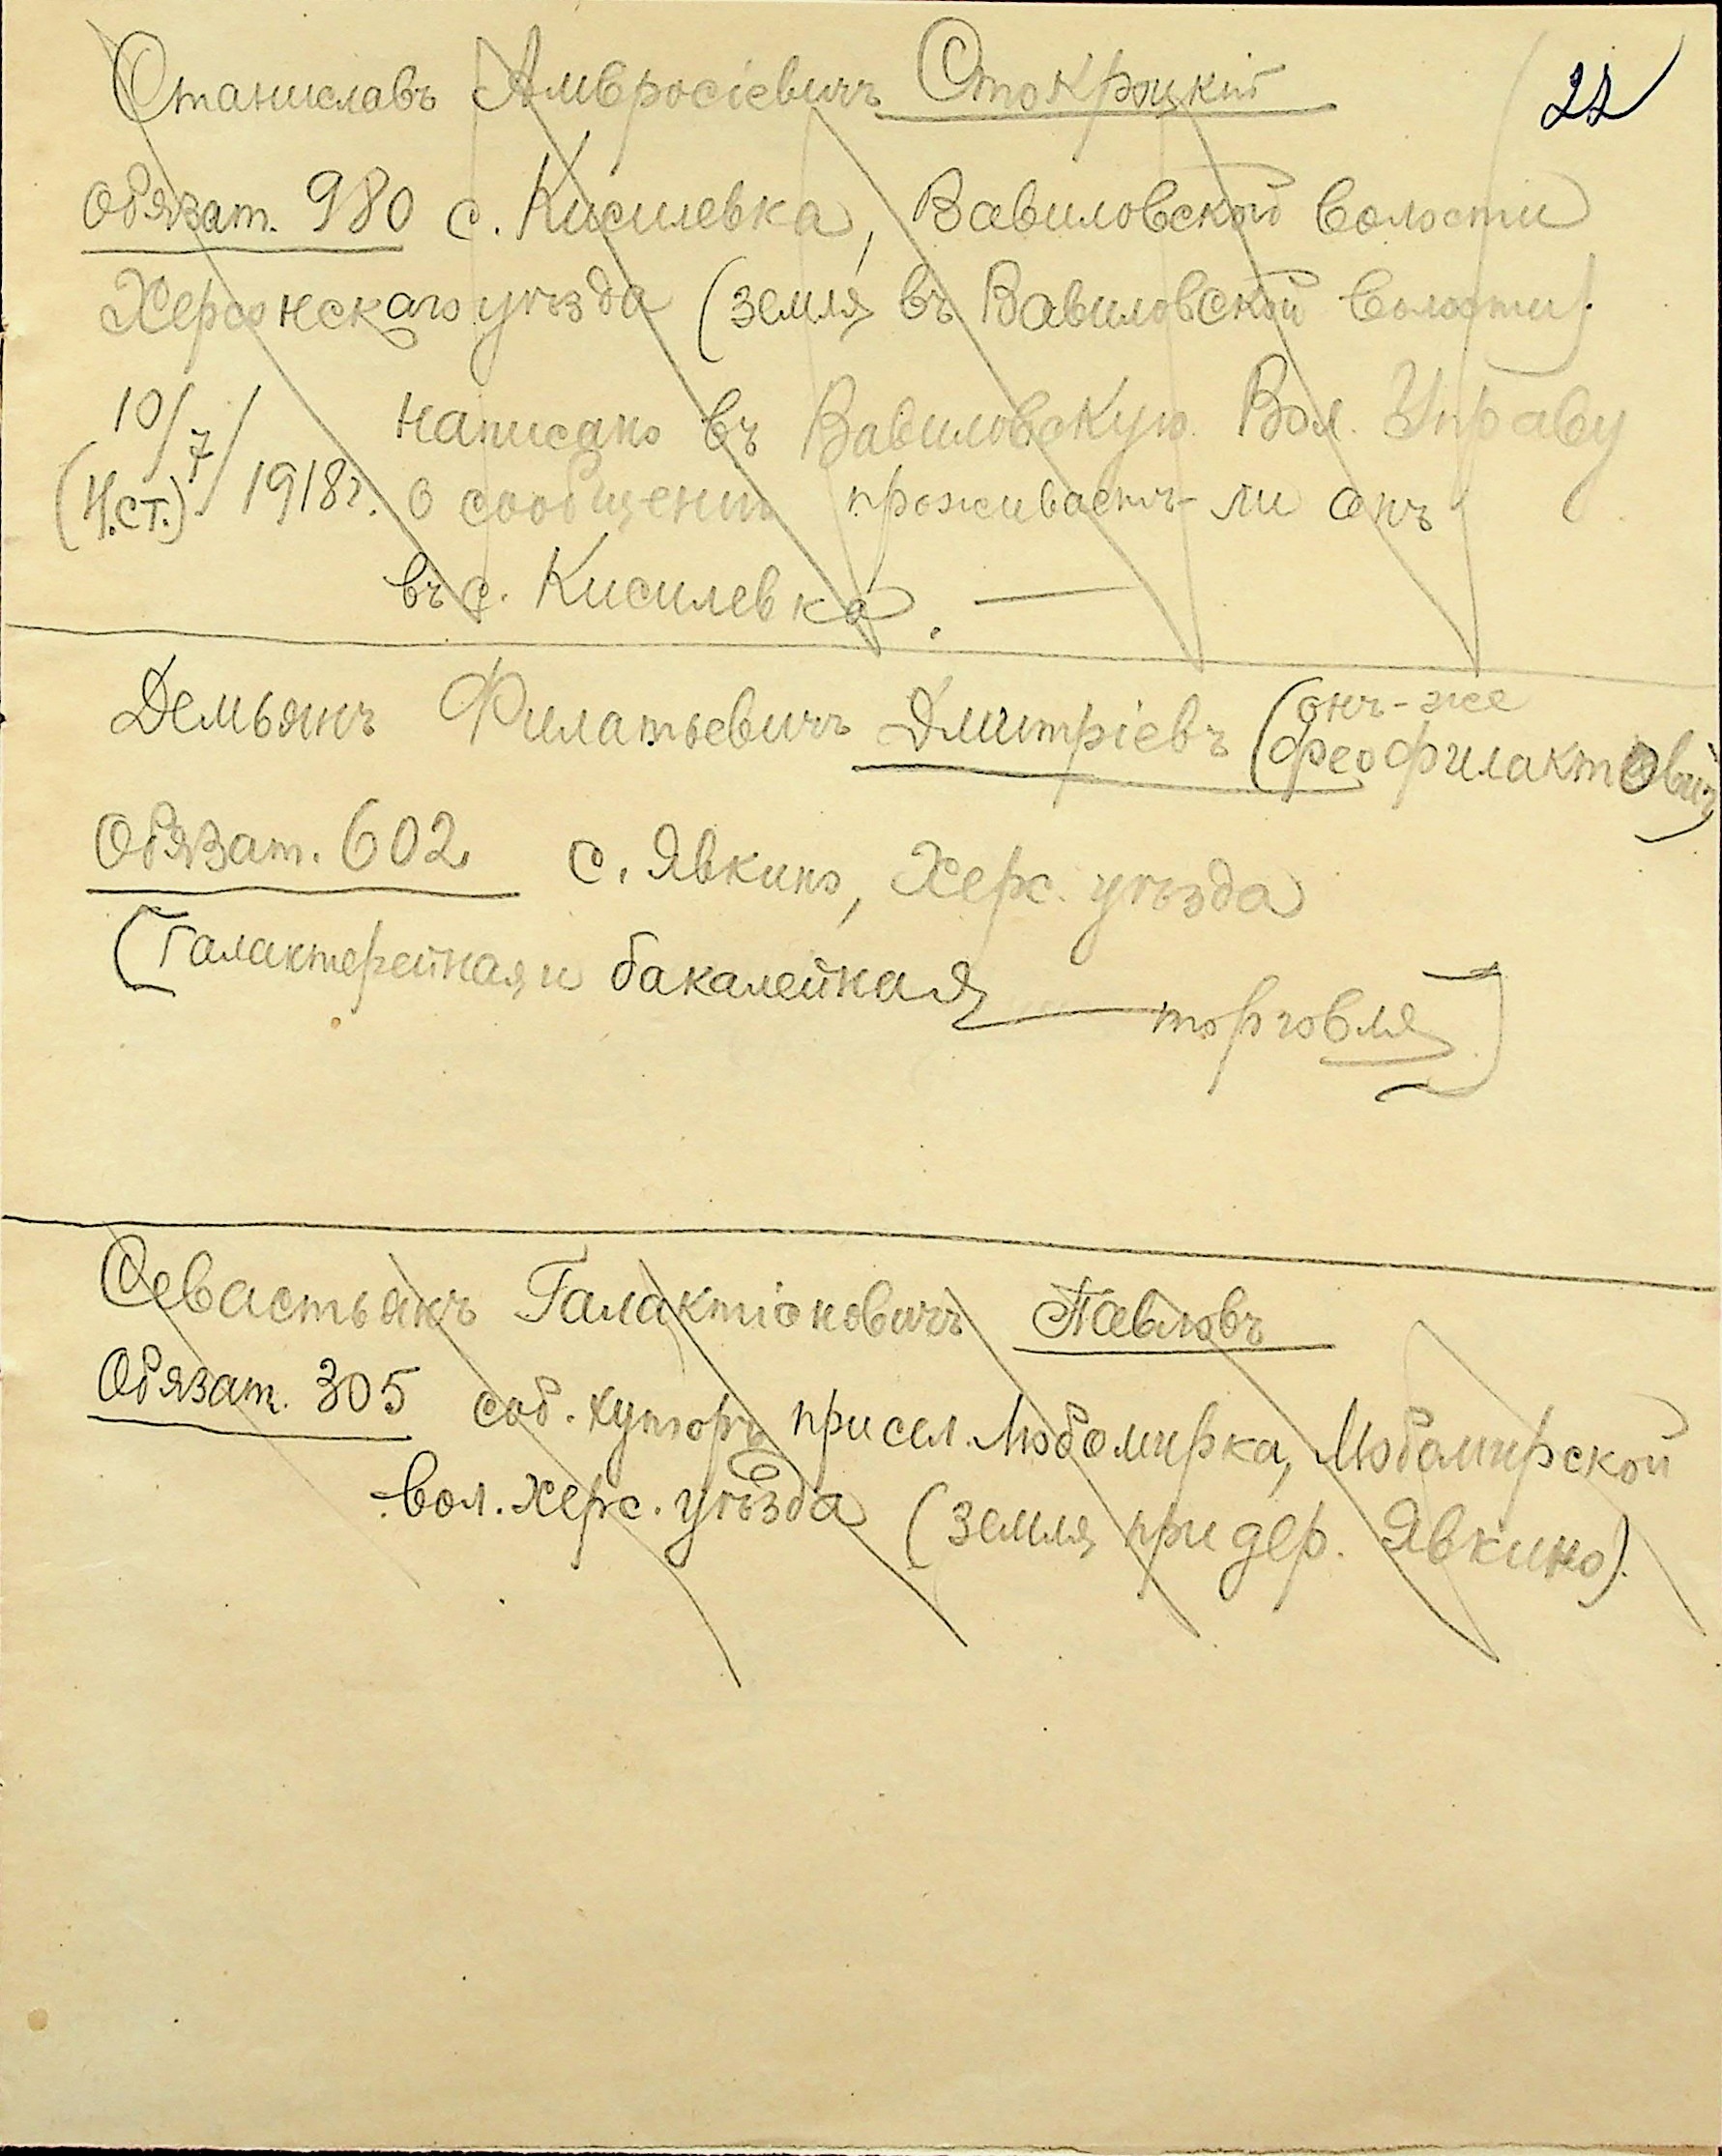 Станиславъ Амвросіевичъ Стокроцкій
22
Обязат. 980 с. Кисилевка, Вавиловской волости
Херсонскаго уѣзда (земля въ Вавиловской волости).
10/7/1918г. написано въ Вавиловскую Вол. Управу
(н.ст.) о сообщении проживаетъ-ли онъ
въ с. Кисилевка. —
Демьянъ Филатьевичъ Дмитріевъ (онъ-же
Феофилактовичъ)
Обязат. 602 с. Явкино, Херс. уѣзда
(Галактерейная и бакалейная торговля)
Севастьянъ Галактіоновичъ Павловъ
Обязат. 305 соб. хуторъ при сел. Любомирка, Любомирской
вол. Херс. уѣзда (земля при дер. Явкино).